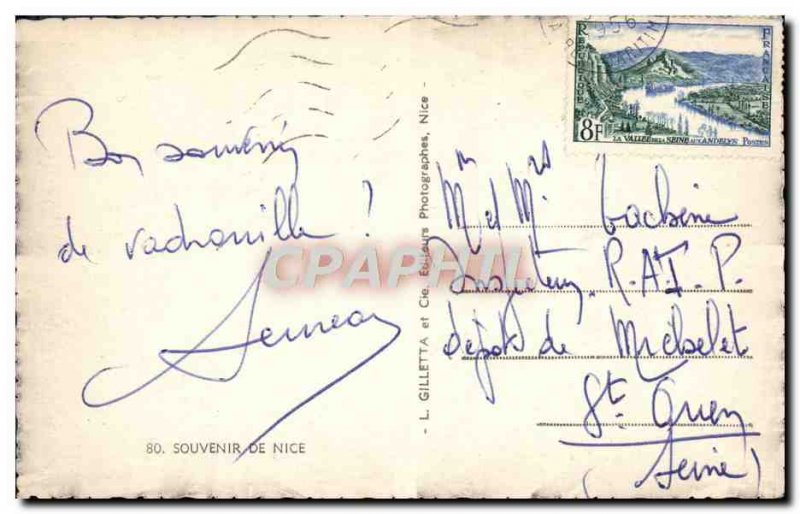 Bon souvenir
de vadrouille !
80. SOUVENIR DE NICE
- L. GILLETTA et Cie, Editeurs Photographes, Nice -
1956
REPUBLIQUE FRANÇAISE
8F
LA VALLEE DE LA SEINE AUX ANDELYS POSTES
Mr et Mrs
Inspecteur R.A.T.P.
dépôt de Michelet
St. Ouen
(Seine)
CPARPHIL